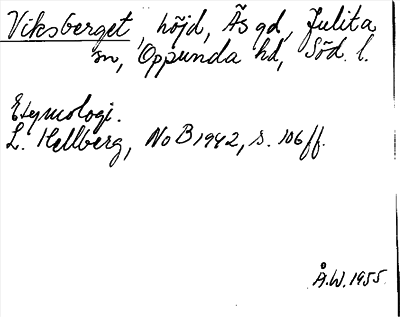 Viksberget, höjd, Ås gd, Julita
sn, Oppunda hd, Söd. l.
Etymologi.
L. Hellberg, NoB 1942, s. 106 ff.
Å.W. 1955.